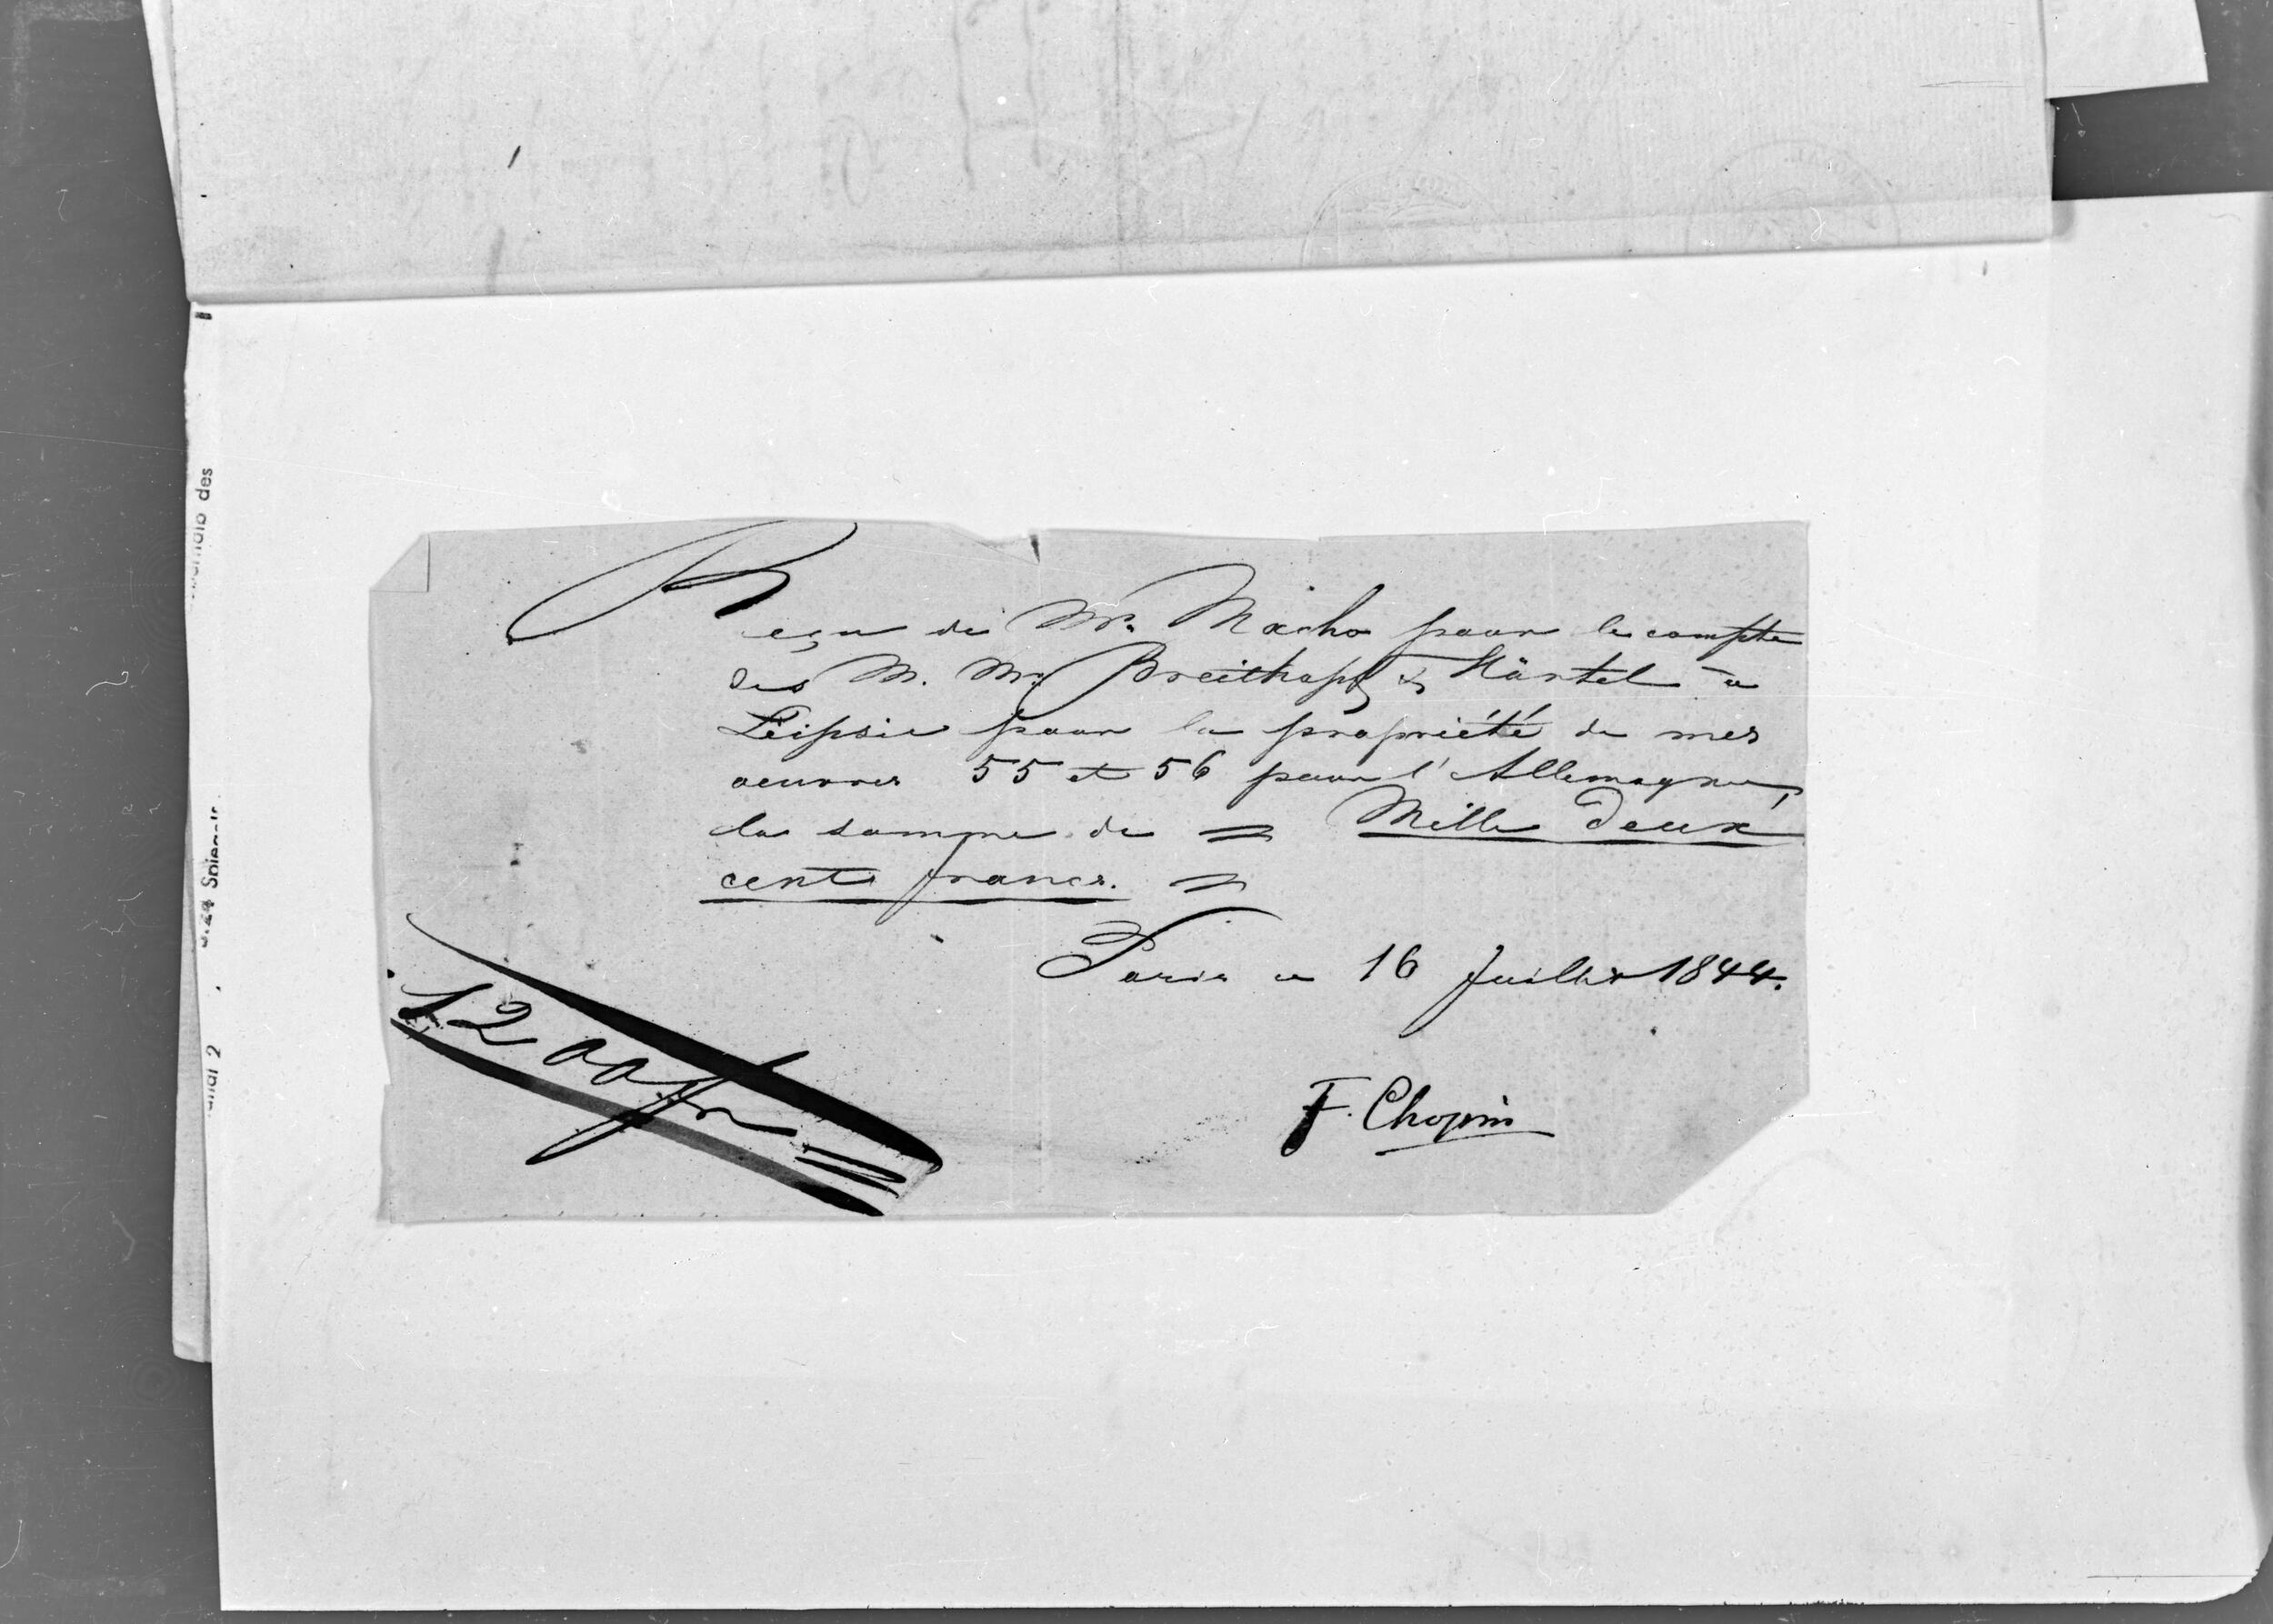 Reçu de Mr. Macho pour le compte
des M. Mrs Breitkopf & Härtel à
Leipsic pour la propriété de mes
oeuvres 55 et 56 pour l'Allemagne,
la somme de = Mille deux
cents francs. =
Paris ce 16 Juillet 1844.
1200 fr =
F. Chopin
des
anal 2